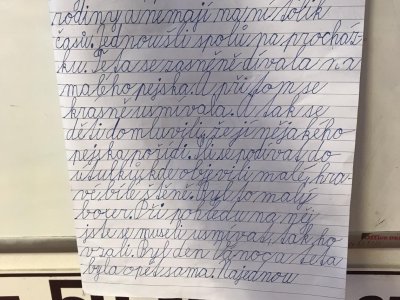 rodiny a nemají na ně tolik
času. Jednou šli spolu na procház-
ku. Teta se zasněně dívala na
malého pejska a přitom se
krásně usmívala. A tak se
děti domluvily, že jí nějakého
pejska pořídí. Šli se podívat do
útulků, kde objevili malé, hra-
vé bílé štěně. Byl to malý
boxer. Při pohledu na něj
jste se museli usmívat, tak ho
vzali. Byl den Vánoc a teta
byla opět sama. Najednou